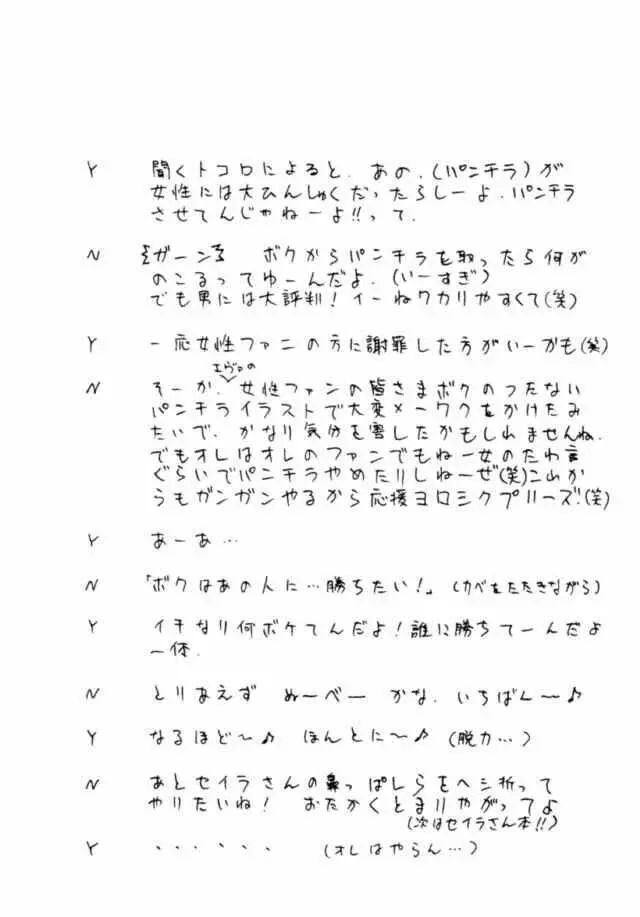 Y 聞くトコロによると、あの、(パンチラ)が
女性には大ひんしゅくだったらしーよ、パンチラ
させてんじゃねーよ!!って、
N ガーン ボクからパンチラを取ったら何が
のこるってゆーんだよ、(いーすぎ)
でも男には大評判!イーねワカリやすくて(笑)
Y 一応女性ファンの方に謝罪した方がいーかも(笑)
エヴァの
N そーか、女性ファンの皆さまボクのつたない
パンチライラストで大変メーワクをかけたみ
たいで、かなり気分を害したかもしれませんね、
でもオレはオレのファンでもねー女のたわ言
ぐらいでパンチラやめたりしねーぜ(笑)これか
らもガンガンやるから応援ヨロシクプリーズ!(笑)
Y あーあ…
N 「ボクはあの人に…勝ちたい!」(カベをたたきながら)
Y イキなり何ボケてんだよ!誰に勝ちてーんだよ
一体、
N とりあえず ぬーべー かな、いちばん〜♪
Y なるほど〜♪ ほんとに〜♪ (脱力…)
N あとセイラさんの鼻っぱしらをヘシ折って
やりたいね! おたかくとまりやがってよ
(次はセイラさん本!!)
Y ・・・・・・ (オレはやらん…)